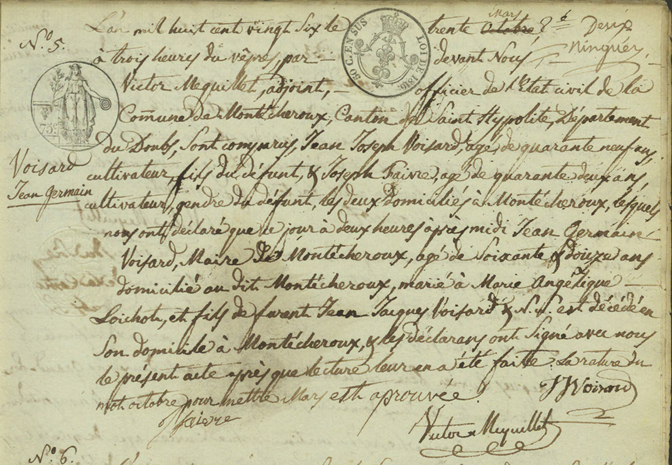 N.° 5.
L'an mil huit cent vingt Six le trente Octobre Mars
à trois heures du vêpres, par devant Nous
Victor Mequillet, adjoint, officier de l'Etat civil de la
Commune de Montécheroux, Canton de Saint Hypolite, Département
du Doubs, Sont comparus, Jean Joseph Voisard, agé de quarante neuf ans,
Voisard
Jean Germain
cultivateur, fils du défunt, & Joseph Faivre, agé de quarante deux ans
cultivateur, gendre du défunt, les deux domiciliés à Montécheroux, lesquels
nous ont déclaré que ce jour à deux heures après midi Jean Germain
Voisard, Maire de Montécheroux, agé de Soixante & douze ans
domicilié au dit Montécheroux, marié à Marie Angélique
Loichot, et fils de furent Jean Jacques Voisard & N. N. est décédé en
Son domicile à Montécheroux, & les déclarans ont Signé avec nous
le présent acte après que lecture leur en a été faite. La rature du
mot octobre pour mettre Mars est aprouvée.
JJ Voisard
Faivre
Victor Mequillet
N.° 6.